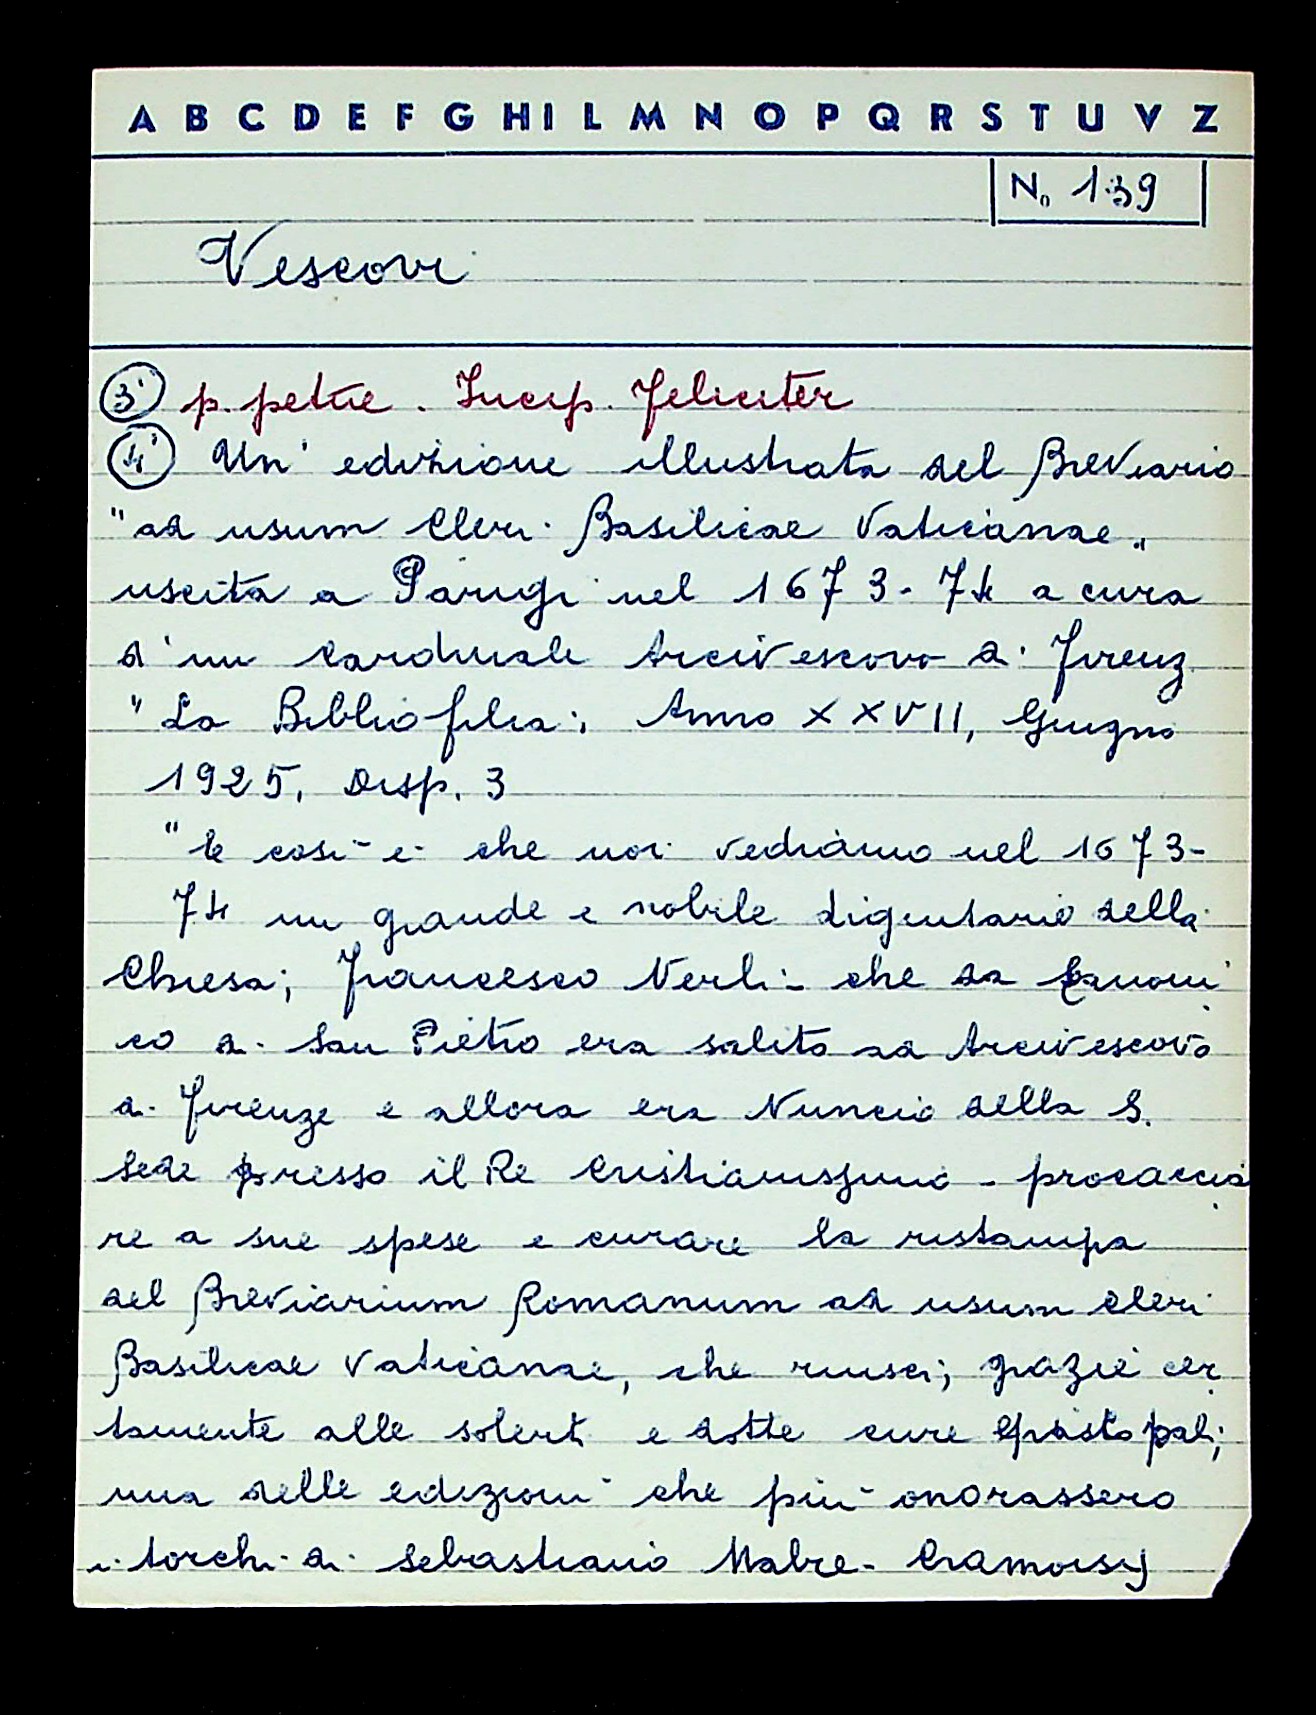 A B C D E F G H I L M N O P Q R S T U V Z
No 139
Vescovi
3' p. petue. Incip. Feliciter
4' Un' edizione illustrata del Breviario
"ad usum Cleri Basilicae Vaticanae"
uscita a Parigi nel 1673-74 a cura
d'un Cardinale Arcivescovo di Firenz
"La Bibliofilia; Anno XXVII, Giugno
1925, Disp. 3
"E così è che noi vediamo nel 1673-
74 un grande e nobile dignitario della
Chiesa; Francesco Nerli - che da Canoni
co di San Pietro era salito ad Arcivescovo
di Firenze e allora era Nuncio della S.
Sede presso il Re Cristianissimo - procaccia
re a sue spese e curare la ristampa
del Breviarium Romanum ad usum cleri
Basilicae Vaticanae, che riuscì; grazie cer
tamente alle solerti e dotte cure
una delle edizioni che più onorassero
i torchi di Sebastiano Mabre-Cramoisy